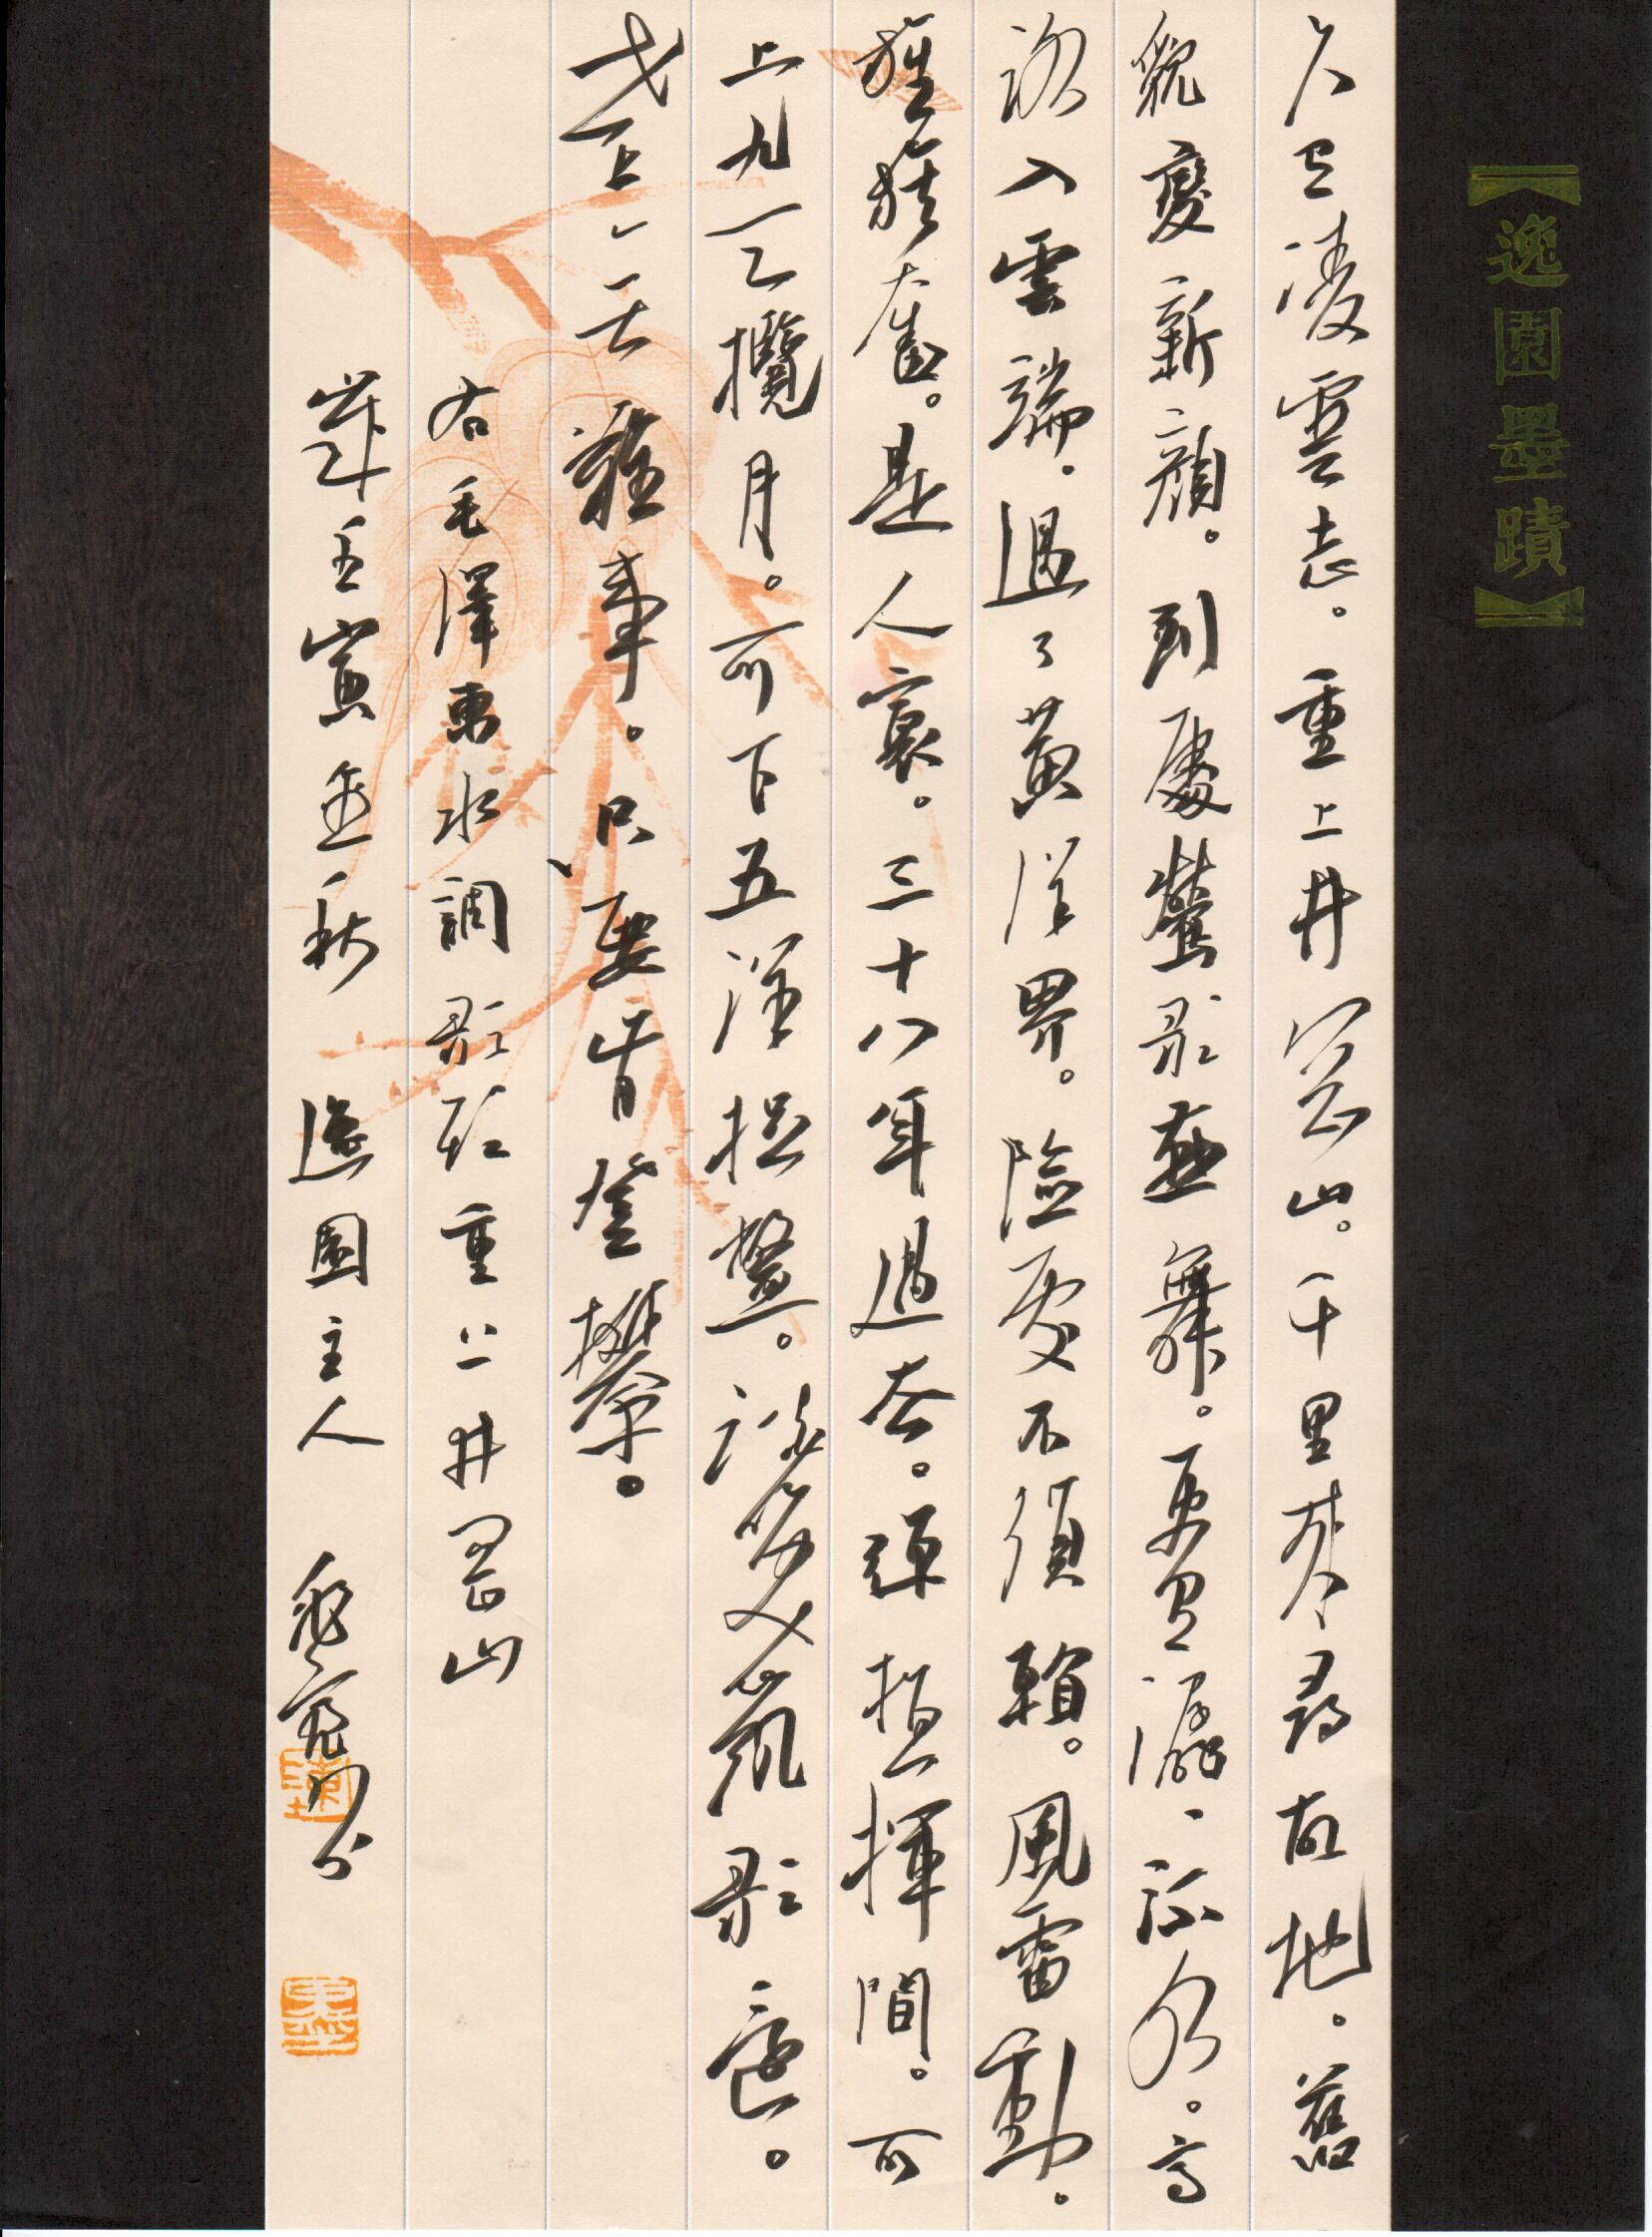 【逸園墨蹟】
久有凌雲志。重上井岡山。千里來尋故地。舊
貌變新顏。到處鶯歌燕舞。更有潺、流水。高
路入雲端。過了黃洋界。險處不須看。風雷動。
旌旗奮。是人寰。三十八年過去。彈指揮間。可
上九天攬月。可下五洋捉鱉。談笑凱歌還。
世上無難事。只要肯登攀。
右毛澤東水調歌頭重上井岡山
歲壬寅金秋 逸園主人